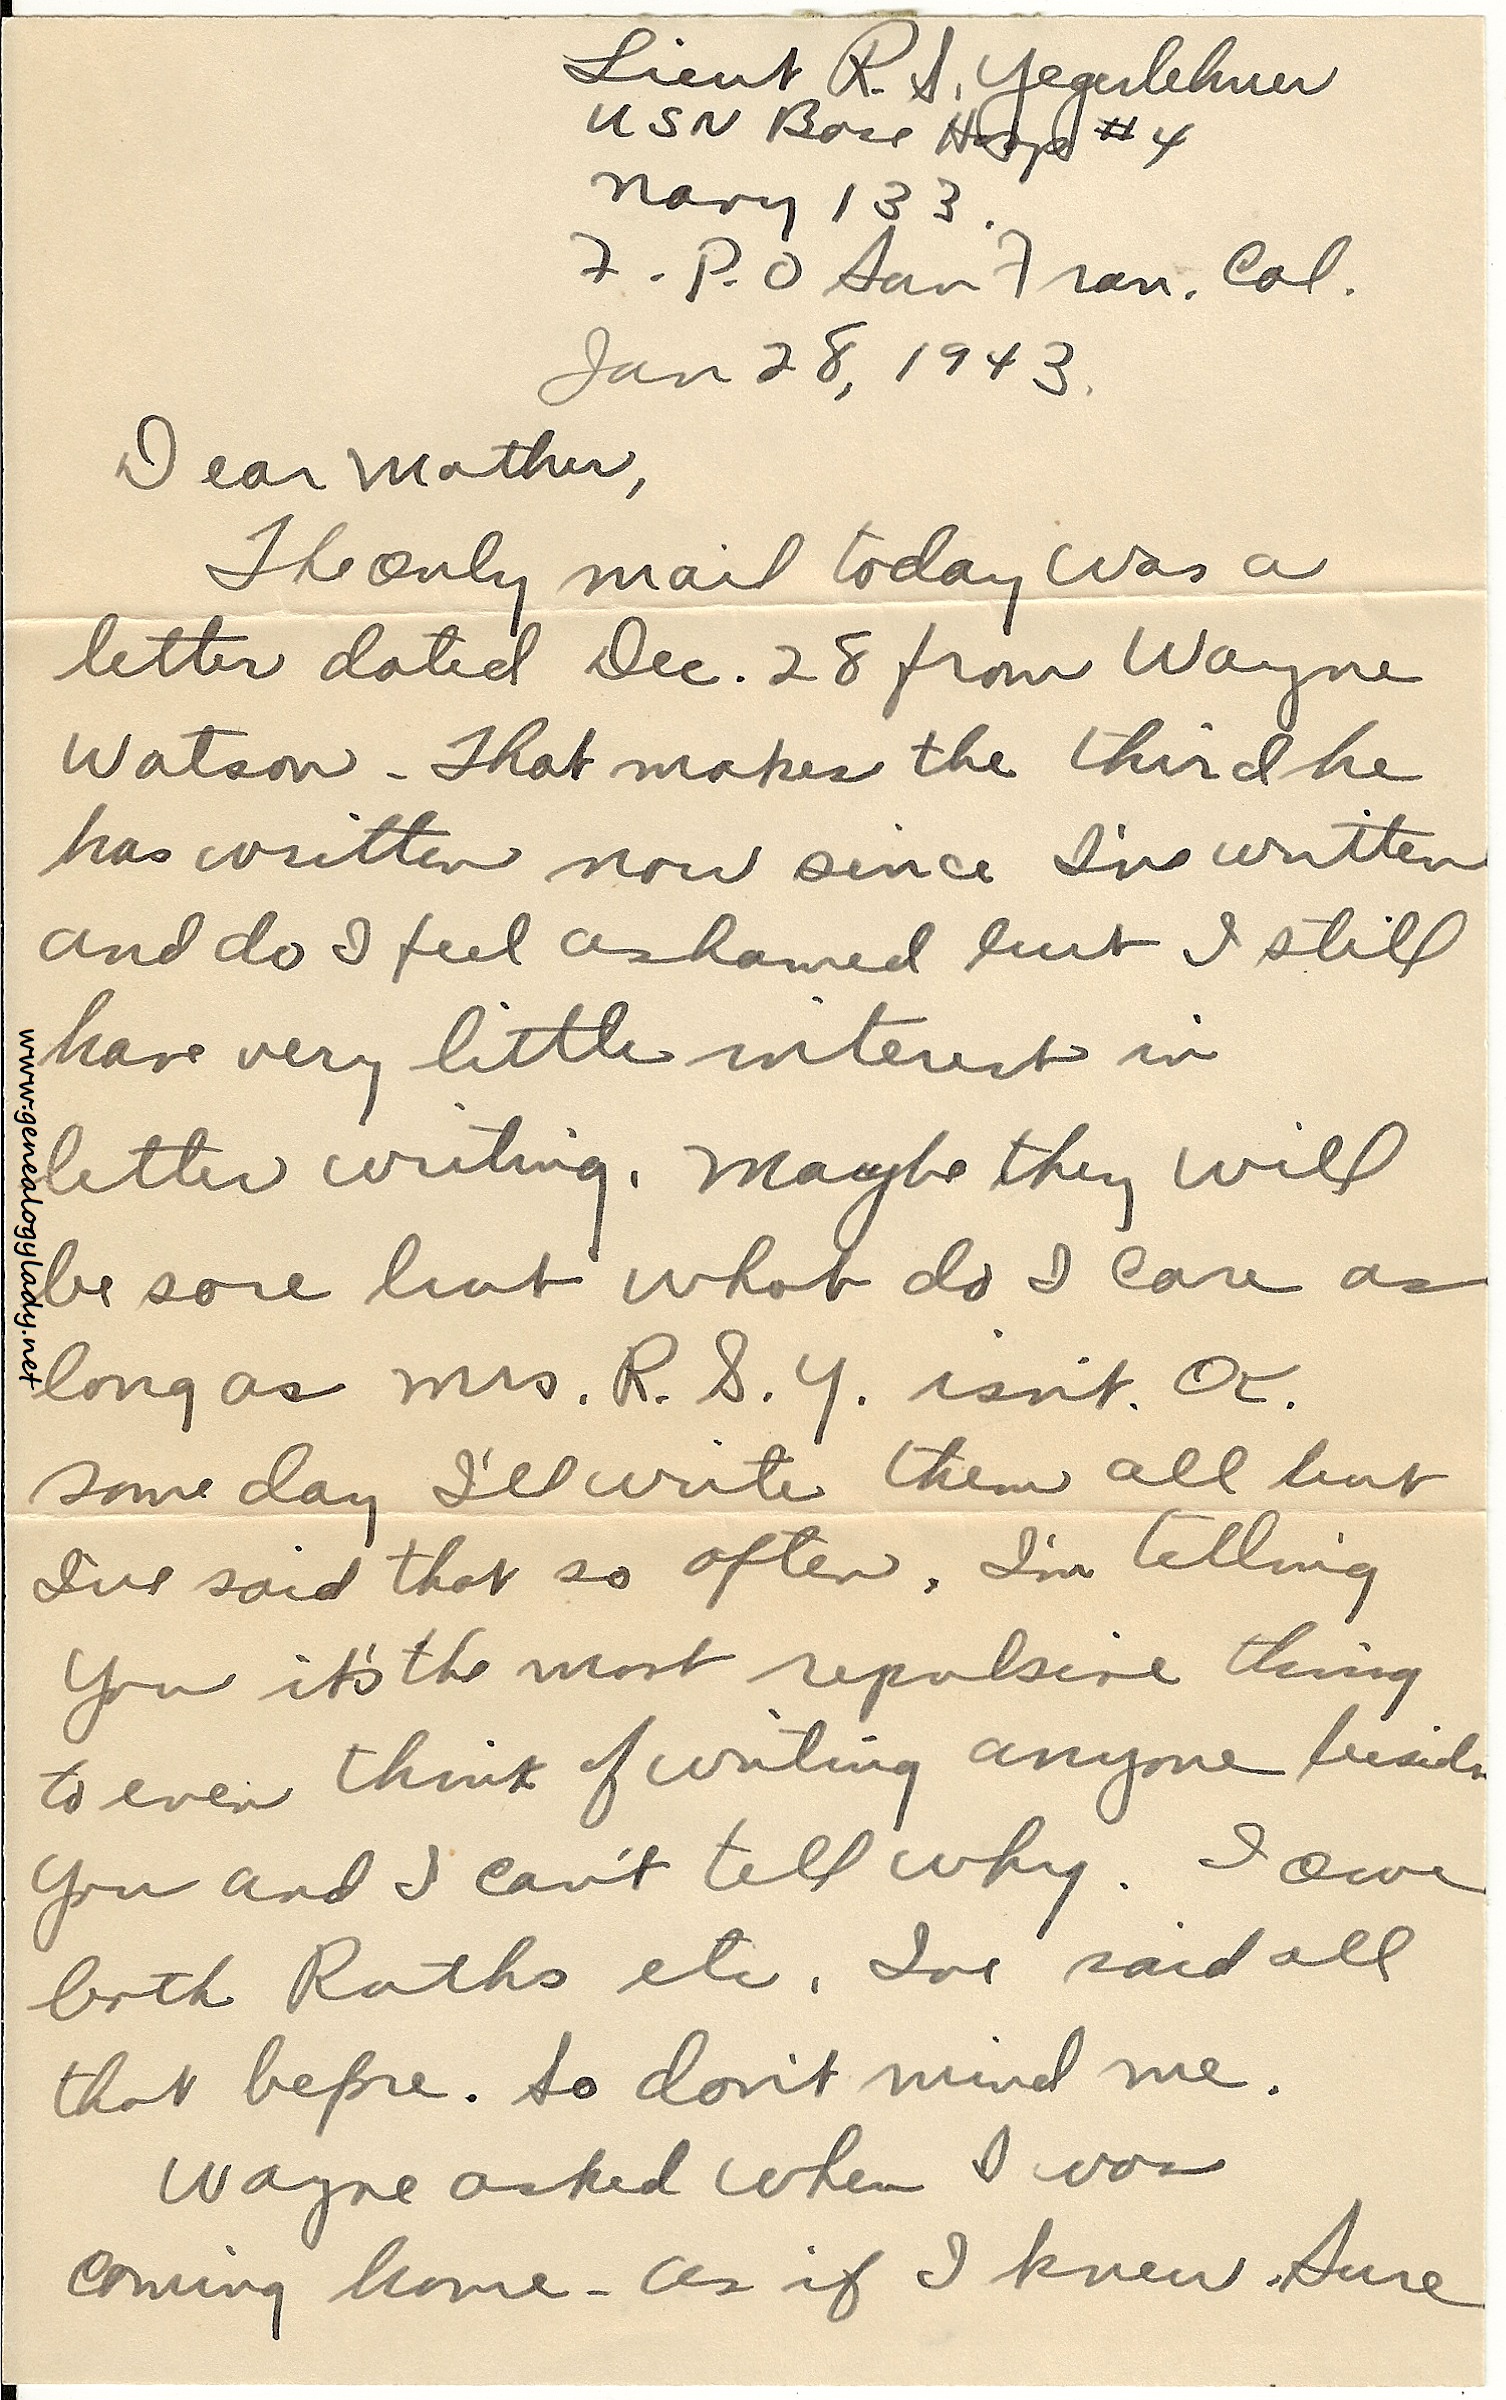 Lieut R. S. Yegerlehner
USN Base Hosp #4
Navy 133.
F. P. O San Fran. Cal.
Jan 28, 1943.
Dear Mother,
The only mail today was a
letter dated Dec. 28 from Wayne
Watson - That makes the third he
has written now since I've written
and do I feel ashamed but I still
have very little interest in
letter writing. Maybe they will
be sore but what do I care as
long as Mrs. R. S. Y. isn't. OK.
some day I'll write them all but
I've said that so often. I'm telling
you it's the most repulsive thing
to even think of writing anyone beside
you and I can't tell why. I owe
both Roths etc. I've said all
that before. So don't mind me.
Wayne asked when I was
coming home - as if I knew. Sure
www.genealogylady.net